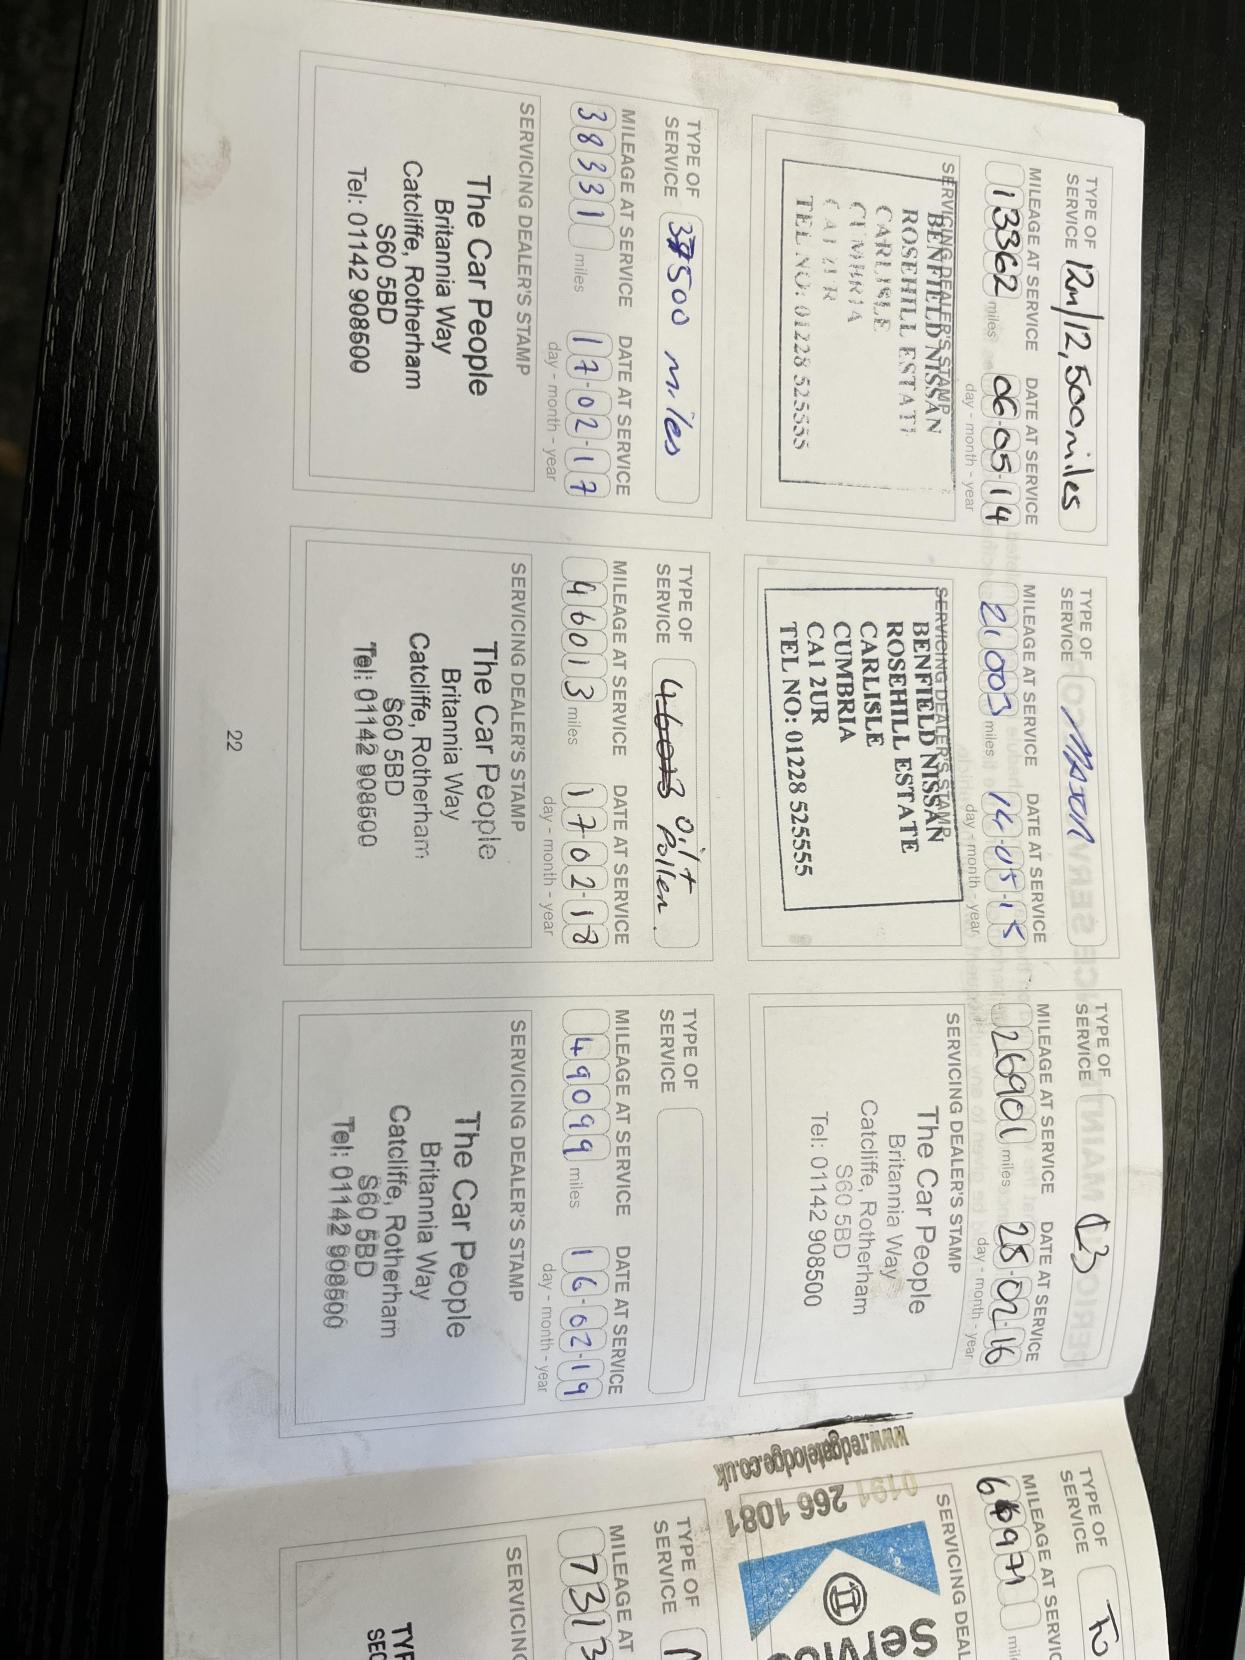 TYPE OF
SERVICE 12m/12,500miles
MILEAGE AT SERVICE DATE AT SERVICE
13362 miles 06-05-14
day - month - year
SERVICING DEALER'S STAMP
BENFIELD NISSAN
ROSEHILL ESTATE
CARLISLE
CUMBRIA
CA1 2UR
TEL NO: 01228 525555
TYPE OF
SERVICE MAJOR
MILEAGE AT SERVICE DATE AT SERVICE
21003 miles 14-05-15
day - month - year
SERVICING DEALER'S STAMP
BENFIELD NISSAN
ROSEHILL ESTATE
CARLISLE
CUMBRIA
CA1 2UR
TEL NO: 01228 525555
TYPE OF
SERVICE
MILEAGE AT SERVICE DATE AT SERVICE
26901 miles 25-02-16
day - month - year
SERVICING DEALER'S STAMP
The Car People
Britannia Way
Catcliffe, Rotherham
S60 5BD
Tel: 01142 908500
TYPE OF
SERVICE 37500 miles
MILEAGE AT SERVICE DATE AT SERVICE
38331 miles 17-02-17
day - month - year
SERVICING DEALER'S STAMP
The Car People
Britannia Way
Catcliffe, Rotherham
S60 5BD
Tel: 01142 908500
TYPE OF
SERVICE 46013 oil+
Pollen.
MILEAGE AT SERVICE DATE AT SERVICE
46013 miles 17-02-18
day - month - year
SERVICING DEALER'S STAMP
The Car People
Britannia Way
Catcliffe, Rotherham
S60 5BD
Tel: 01142 908500
TYPE OF
SERVICE
MILEAGE AT SERVICE DATE AT SERVICE
49099 miles 16-02-19
day - month - year
SERVICING DEALER'S STAMP
The Car People
Britannia Way
Catcliffe, Rotherham
S60 5BD
Tel: 01142 908500
22
TYPE OF
SERVICE
MILEAGE AT SERVIC
SERVICING DEAL
0191 266 1081
www.redgatelodge.co.uk
TYPE OF
SERVICE
MILEAGE AT
7313
SERVICING